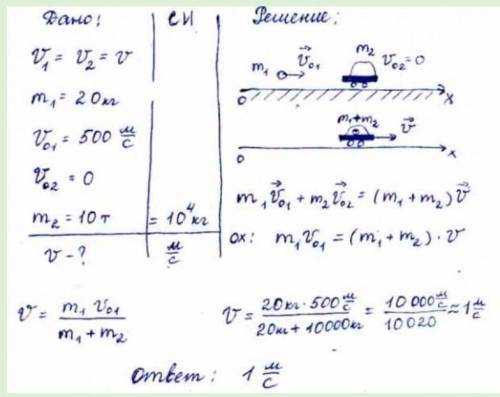 Дано: СИ Решение:
V₁ = V₂ = V
m₁ = 20 кг
V₀₁ = 500 м/с
V₀₂ = 0
m₂ = 10 т = 10⁴ кг
V - ? м/с
m₁ V⃗₀₁ m₂ V₀₂ = 0
0 x
m₁+m₂ V⃗
0 x
m₁V⃗₀₁ + m₂V⃗₀₂ = (m₁ + m₂) V⃗
ох: m₁V₀₁ = (m₁ + m₂) · V
V = m₁ V₀₁ / m₁ + m₂
V = 20 кг · 500 м/с / 20 кг + 10000 кг = 10 000 м/с / 10020 ≈ 1 м/с
Ответ: 1 м/с